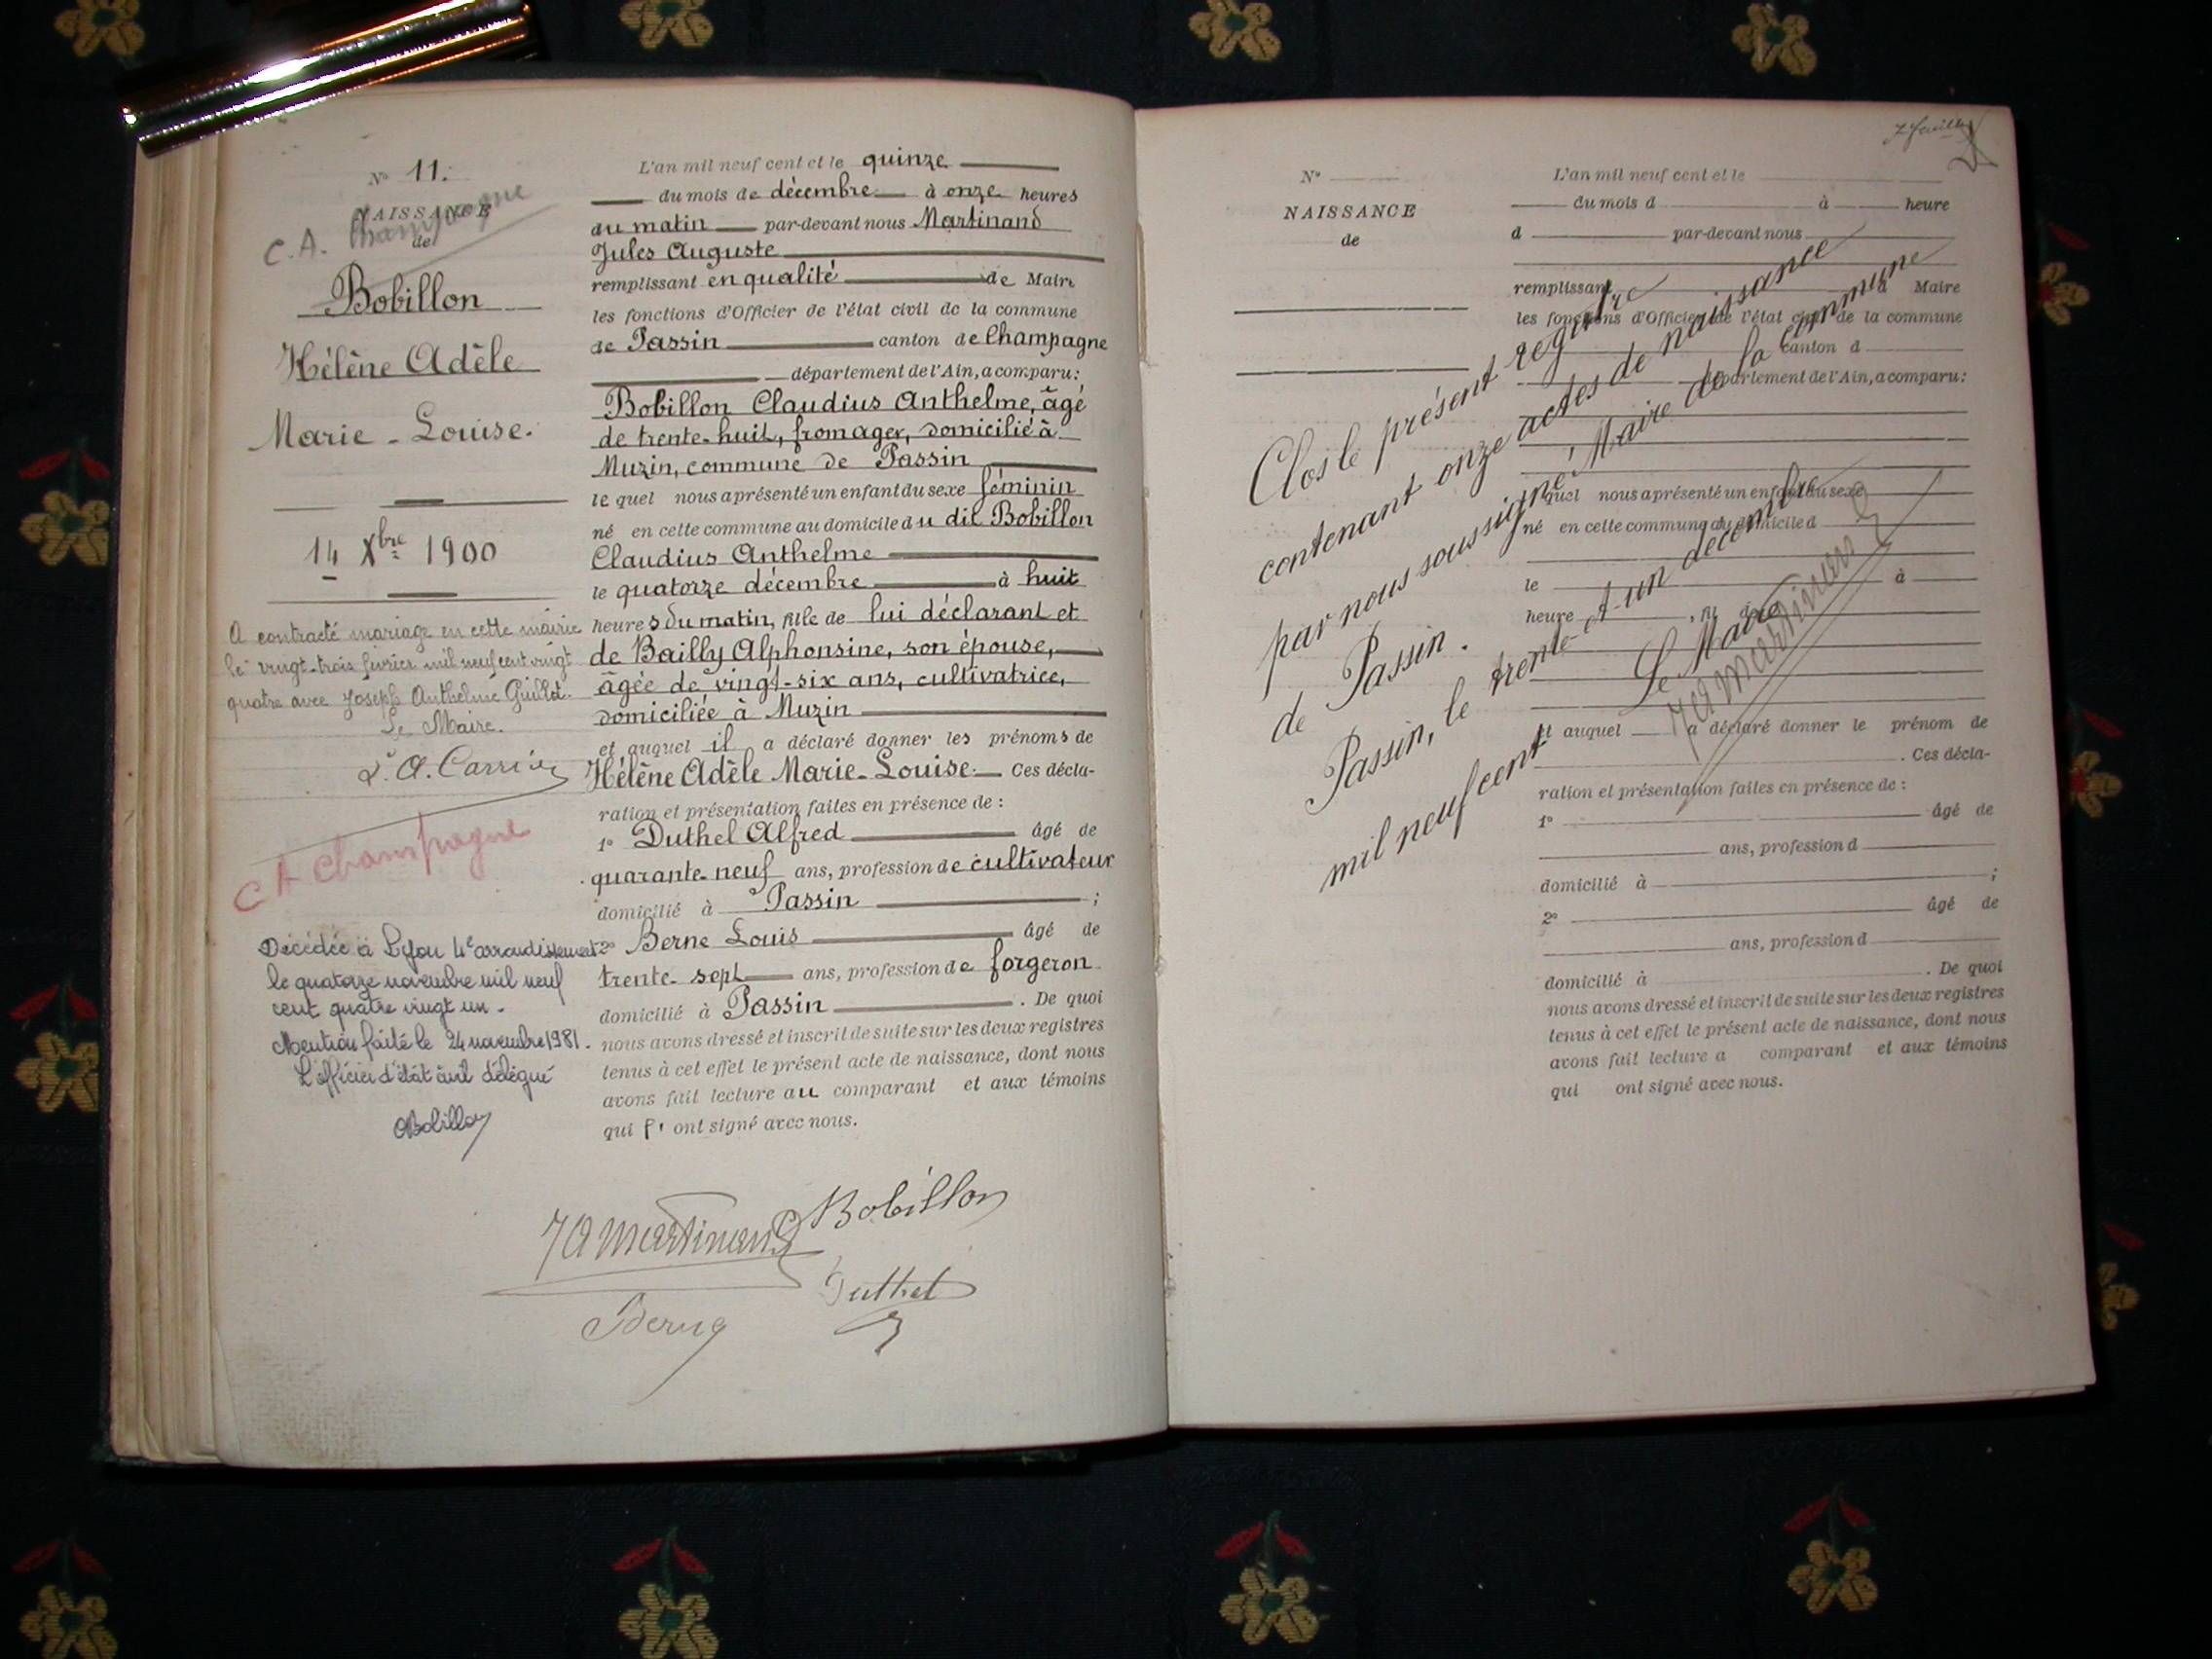 N° 11.
NAISSANCE
de
C. A. Champagne
Bobillon
Hélène Adèle
Marie - Louise.
14 Xbre 1900
A contracté mariage en cette mairie
le vingt-trois février mil neuf cent vingt
quatre avec Joseph Anthelme
Le Maire.
C A Champagne
Décédée à Lyon 4e arrondissement
le quatorze novembre mil neuf
cent quatre vingt un.
Mention faite le 24 novembre 1981.
L'officier d'état civil délégué
Bobillon
L'an mil neuf cent et le quinze
du mois de décembre à onze heures
du matin par-devant nous Martinand
Jules Auguste
remplissant en qualité de Maire
les fonctions d'Officier de l'état civil de la commune
de Passin canton de Champagne
département de l'Ain, a comparu:
Bobillon Claudius Anthelme, âgé
de trente-huit, fromager, domicilié à
Muzin, commune de Passin
le quel nous a présenté un enfant du sexe féminin
né en cette commune au domicile du dit Bobillon
Claudius Anthelme
le quatorze décembre à huit
heures du matin, fille de lui déclarant et
de Bailly Alphonsine, son épouse,
âgée de vingt-six ans, cultivatrice,
domiciliée à Muzin
et auquel il a déclaré donner les prénoms de
Hélène Adèle Marie-Louise. Ces décla-
ration et présentation failes en présence de :
1° Duthel Alfred âgé de
quarante-neuf ans, profession de cultivateur
domicilié à Passin ;
2° Berne Louis âgé de
trente-sept ans, profession de forgeron
domicilié à Passin . De quoi
nous avons dressé et inscrit de suite sur les deux registres
tenus à cet effet le présent acte de naissance, dont nous
avons fait lecture au comparant et aux témoins
qui l' ont signé avec nous.
JA Martinand Bobillon
Duthel
Berne
N°
NAISSANCE
de
L'an mil neuf cent et le
du mois d à heure
d par-devant nous
remplissant d Maire
les fonctions d'Officier de l'état civil de la commune
canton d
département de l'Ain, a comparu:
quel nous a présenté un enfant du sexe
né en cette commune au domicile d
le à
heure , fil d
et auquel a déclaré donner le prénom de
. Ces décla-
ration et présentation failes en présence de :
1° âgé de
ans, profession d
domicilié à ;
2° âgé de
ans, profession d
domicilié à . De quoi
nous avons dressé et inscrit de suite sur les deux registres
tenus à cet effet le présent acte de naissance, dont nous
avons fait lecture a comparant et aux témoins
qui ont signé avec nous.
Clos le présent registre
contenant onze actes de naissance
par nous soussigné Maire de la commune
de Passin.
Passin, le trente-et-un décembre
mil neuf cent
Le Maire
JA Martinand